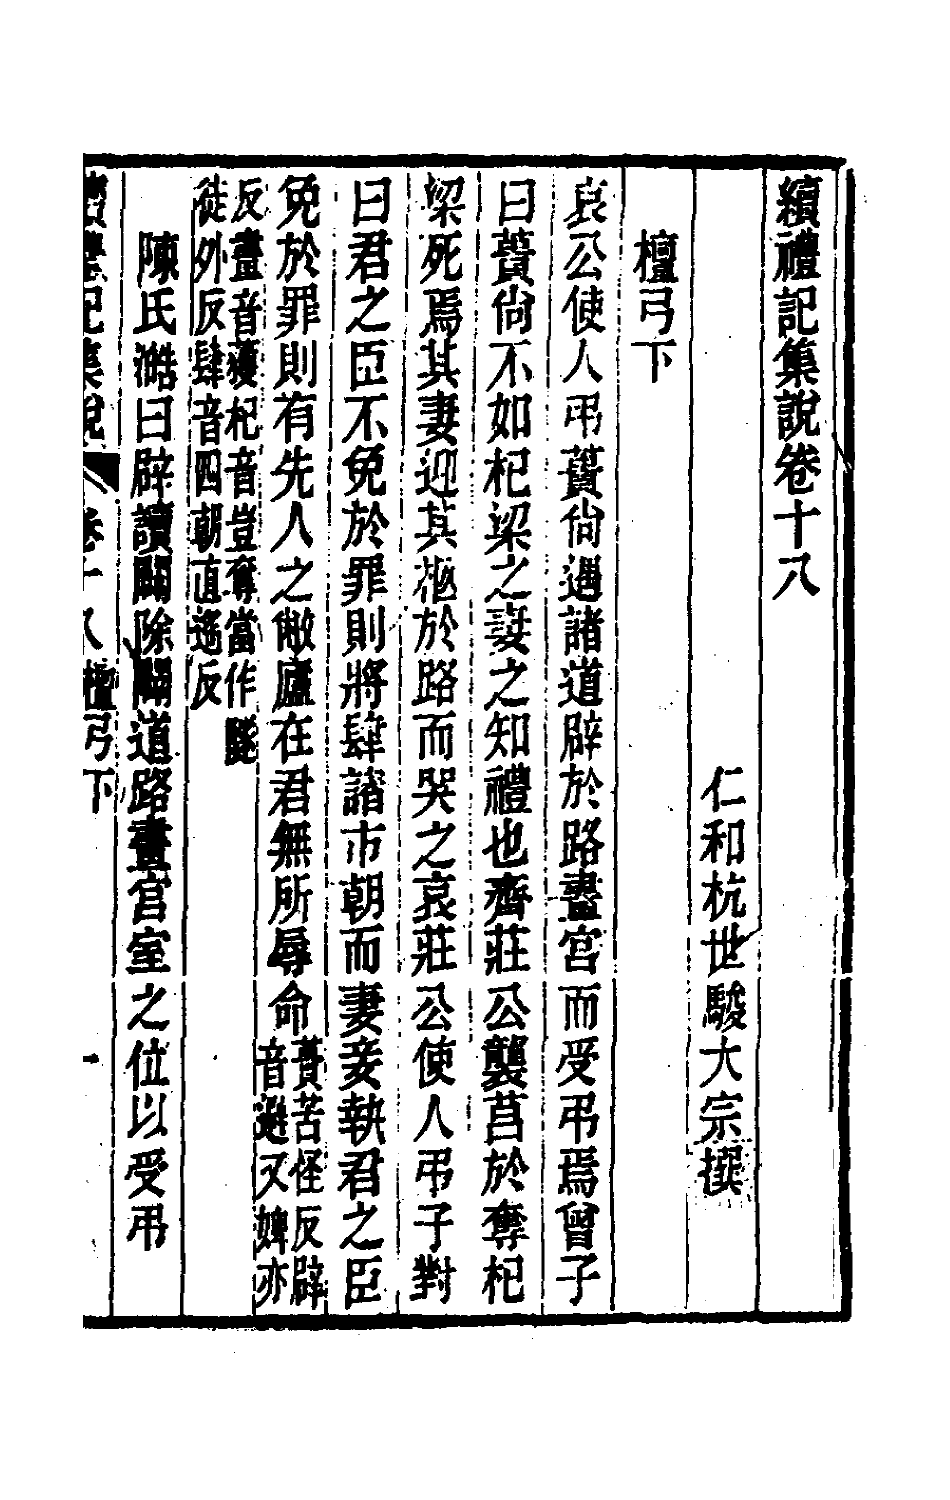 續禮記集說卷十八
仁和杭世駿大宗撰
檀弓下
哀公使人弔蕢尙遇諸道辟於路畫宮而受弔焉曾子
曰蕢尙不如杞梁之妻之知禮也齊莊公襲莒於奪杞
梁死焉其妻迎其柩於路而哭之哀莊公使人弔子對
曰君之臣不免於罪則將肆諸市朝而妻妾執君之臣
免於罪則有先人之敝廬在君無所辱命
蕢苦怪反辟
音避又婢亦
反畫音獲杞音豈奪當作隧
徙外反肆音四朝直遙反
陳氏澔曰辟讀闢除闢道路畫宮室之位以受弔
續禮記集說
卷十八檀弓下
一